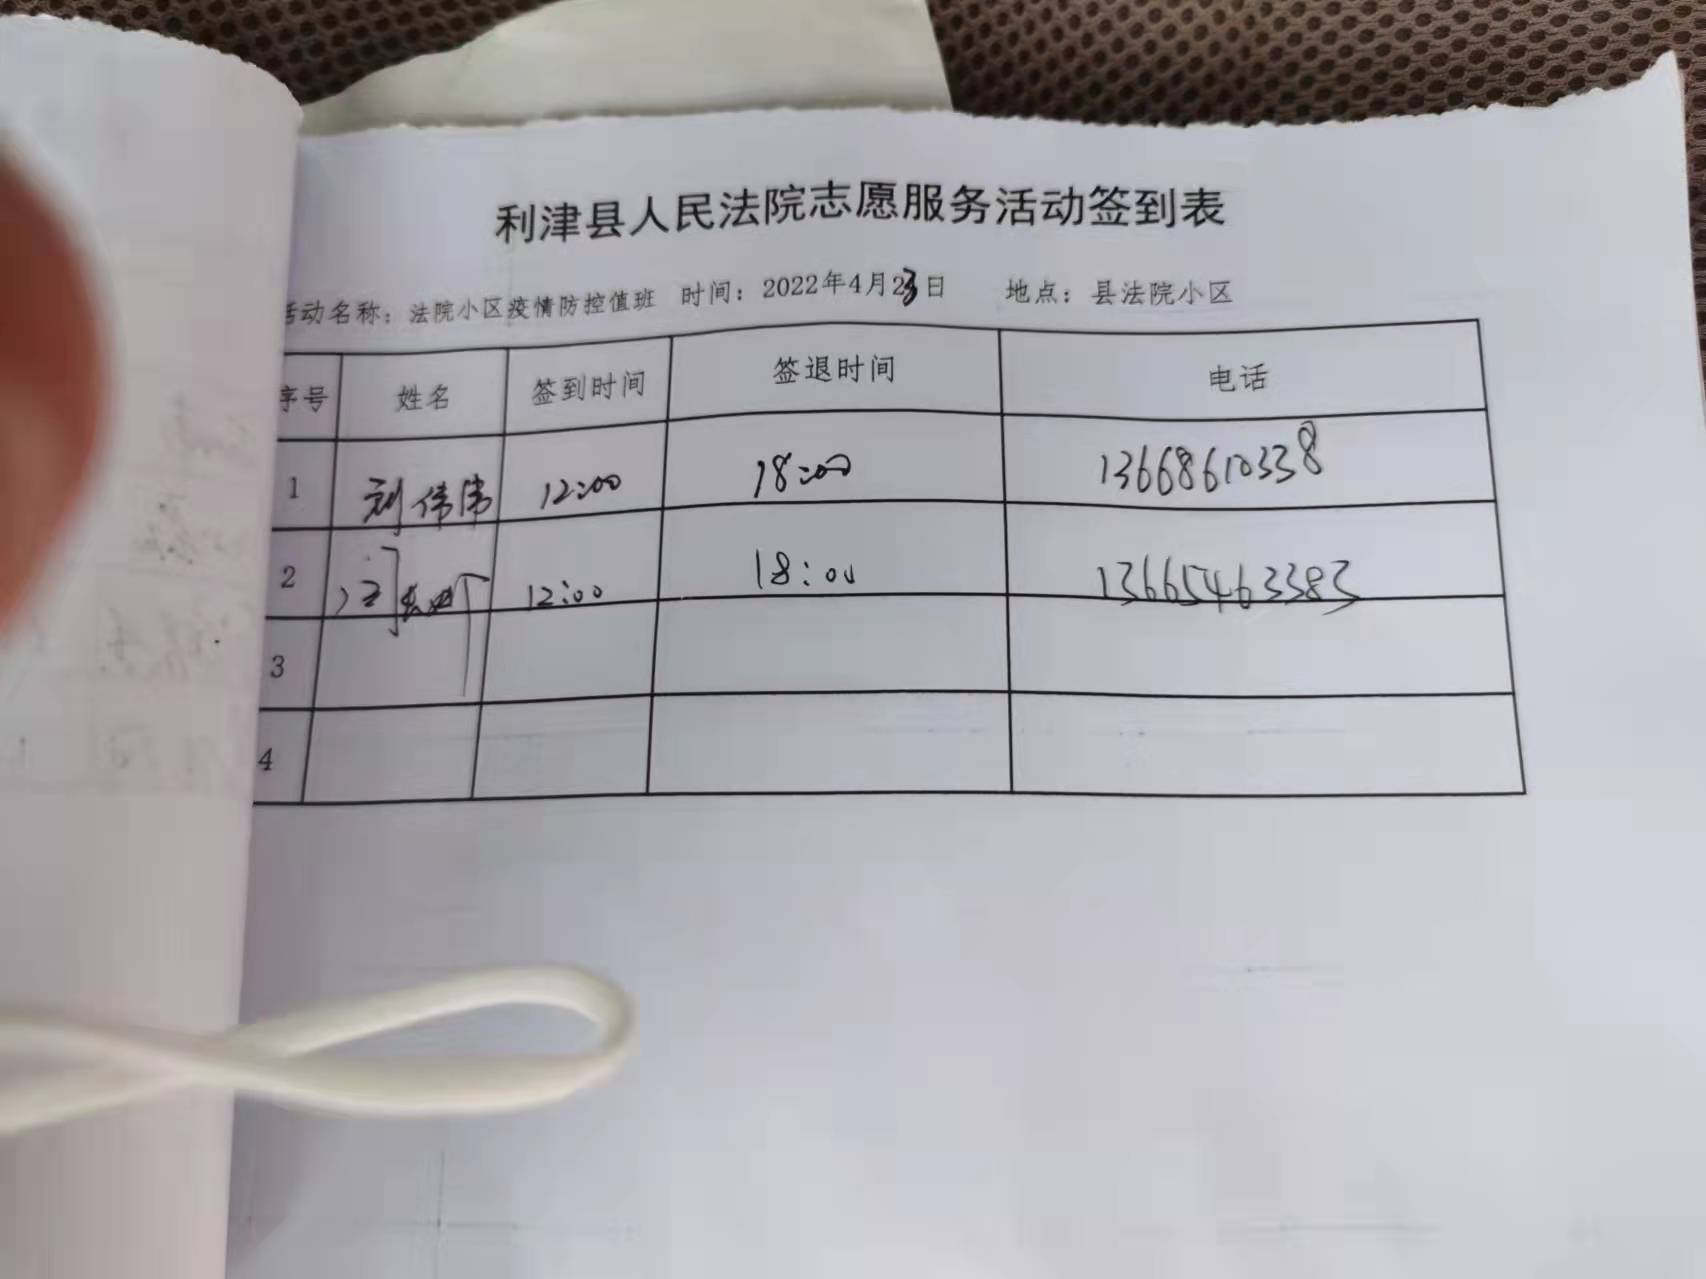 利津县人民法院志愿服务活动签到表
活动名称：法院小区疫情防控值班 时间：2022年4月23日 地点：县法院小区
序号 姓名 签到时间 签退时间 电话
1 刘伟伟 12:00 18:00 13668610338
2 12:00 18:00 13665463383
3
4